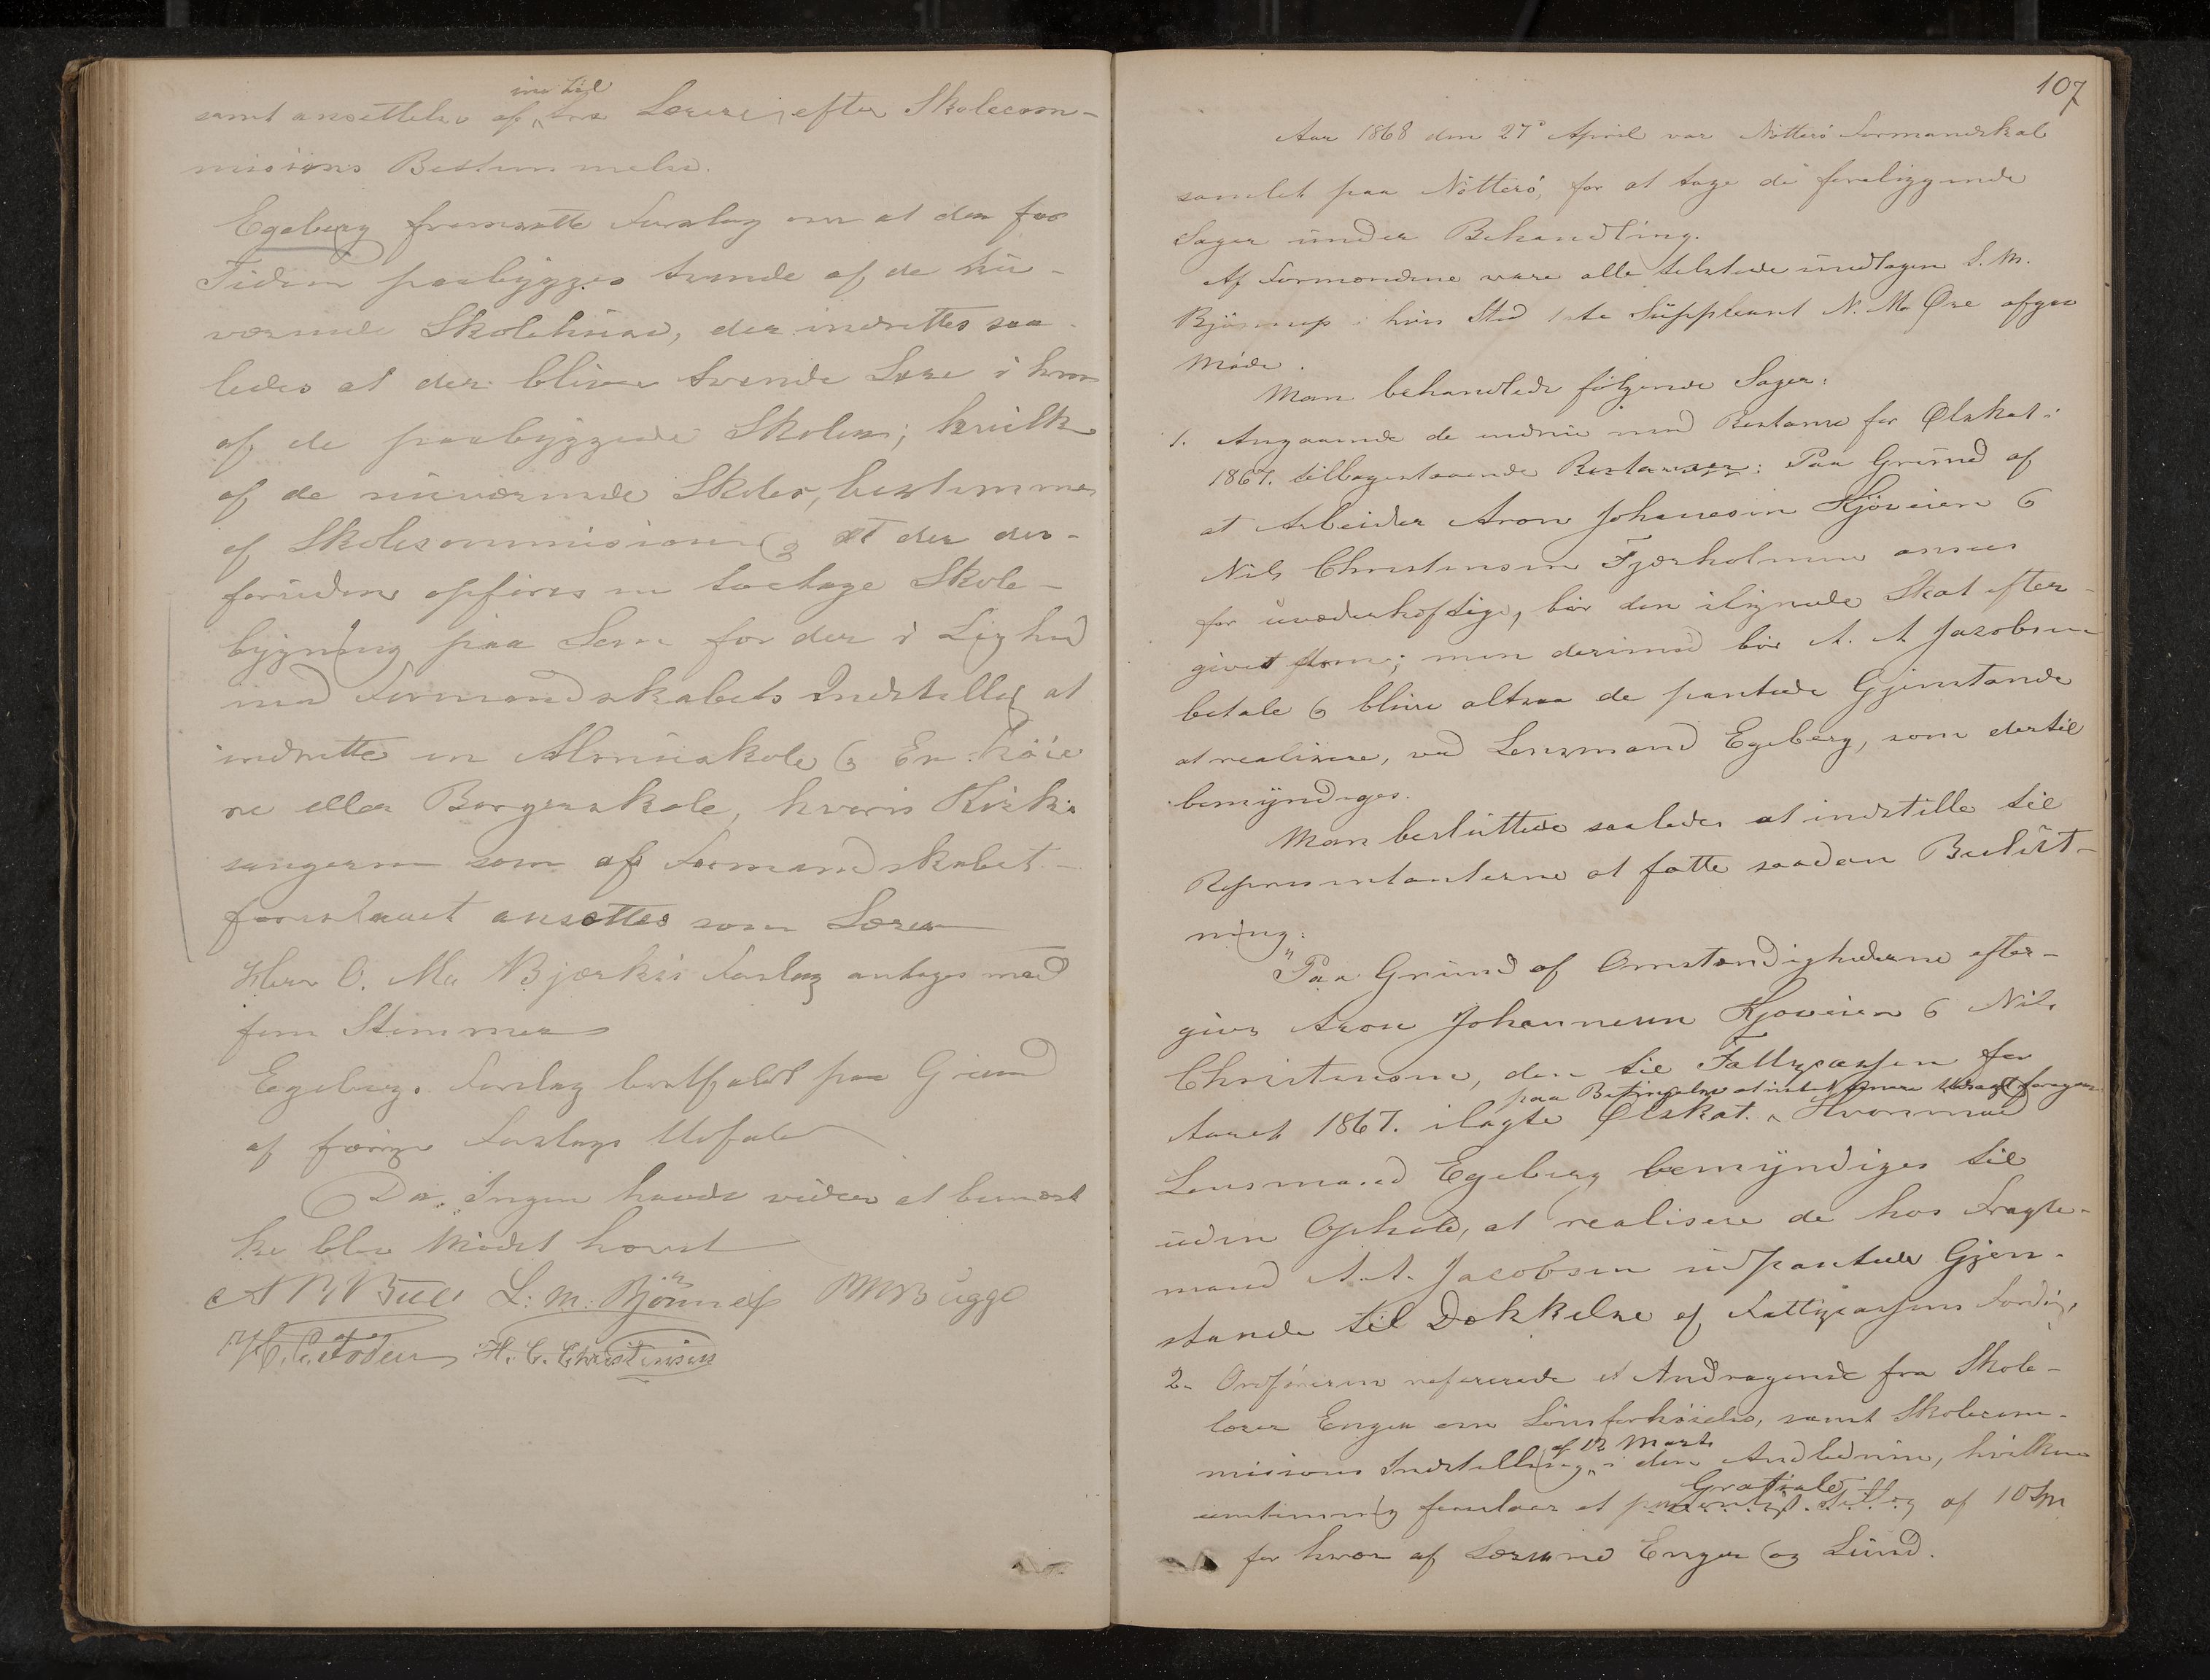 samt ansættelse af ^ine til^ tre Lærere, efter Skolecom-
missions Bestemmelse.
Egeberg fremsatte Forslag om at der for
Tiden paabygges tvende af de nu-
værende Skolehuse, der indrettes saa-
ledes at der bliver tvende Lære i hver
af de paabyggede Skoler; hvilke
af de nuværende Skoler, bestemmes
af Skolecommissionen og at der des-
foruden opføres en toetage Skole-
bygning paa Sem for der i Lighed
med Formandskabets Indstilling at
indrette en Almueskole og En høie
re eller Borgerskole, hvoris Kirke
sangeren som af Formandskabet
foreslaaet ansættes som Lærer
Herr O. Ms Bjerkøs Forslag antoges med
fem Stemmer
Egebergs Forslag bortfaldt paa Grund
af førige Forslags Udfald
Da Ingen havde videre at bemær
ke blev Mødet hævet
A B Bull L. M. Bjønnes M Bugge
H. C. Foden H. C. Christensen
107
Aar 1868 den 27de April var Nøtterø Formandskab
samlet paa Nøtterø, for at tage de foreliggende
Sager under Behandling.
Af Formændene vare alle tilstede undtagen L. M.
Bjønnes i hvis Sted 1ste Suppleant N. M. Øre afgav
Møde.
Man behandlede følgende Sager:
1. Angaaende de endnu med Restance for Ølskat i
1867. tilbagestaaende Restancer: Paa Grund af
at Arbeider Aron Johannesen Kjøveien og
Nils Christensen Fjærholmen ansees
for uvederhæftige, bør den ilignede Skat efter-
gives dem; men derimod bør A. A Jacobsen
betale og blive altsaa de pantede Gjenstande
at realisere, ved Lensmand Egeberg, som dertil
bemyndiges.
Man besluttede saaledes at indstille til
Repræsentanterne at fatte saadan Beslut-
ning:
"Paa Grund af Omstændighederne efter-
gives Aron Johannesen Kjøveien og Nils
Christensen, den til Fattigcassen for
paa Betingelse at intet senere Udsagt foregaar
Aaret 1867. ilagte Ølskat. Hvormed
Lensmand Egeberg bemyndiges til
uden Ophold, at realisere de hos Fragte-
mand A. A. Jacobsen udpantede Gjen-
stande til Dækkelse af Fattigcassens Fordrg.
2. Ordføreren refererede et Andragende fra Skole-
lærer Enger om Lønsforhøielse, samt Skolecom-
missions Indstilling ^af 12 Marts^ i den Anledning, hvilken
Gratiale
enstemmig foreslaar et personligt Tillæg af 10 Spd
for hver af Lærerne Enger og Lund.